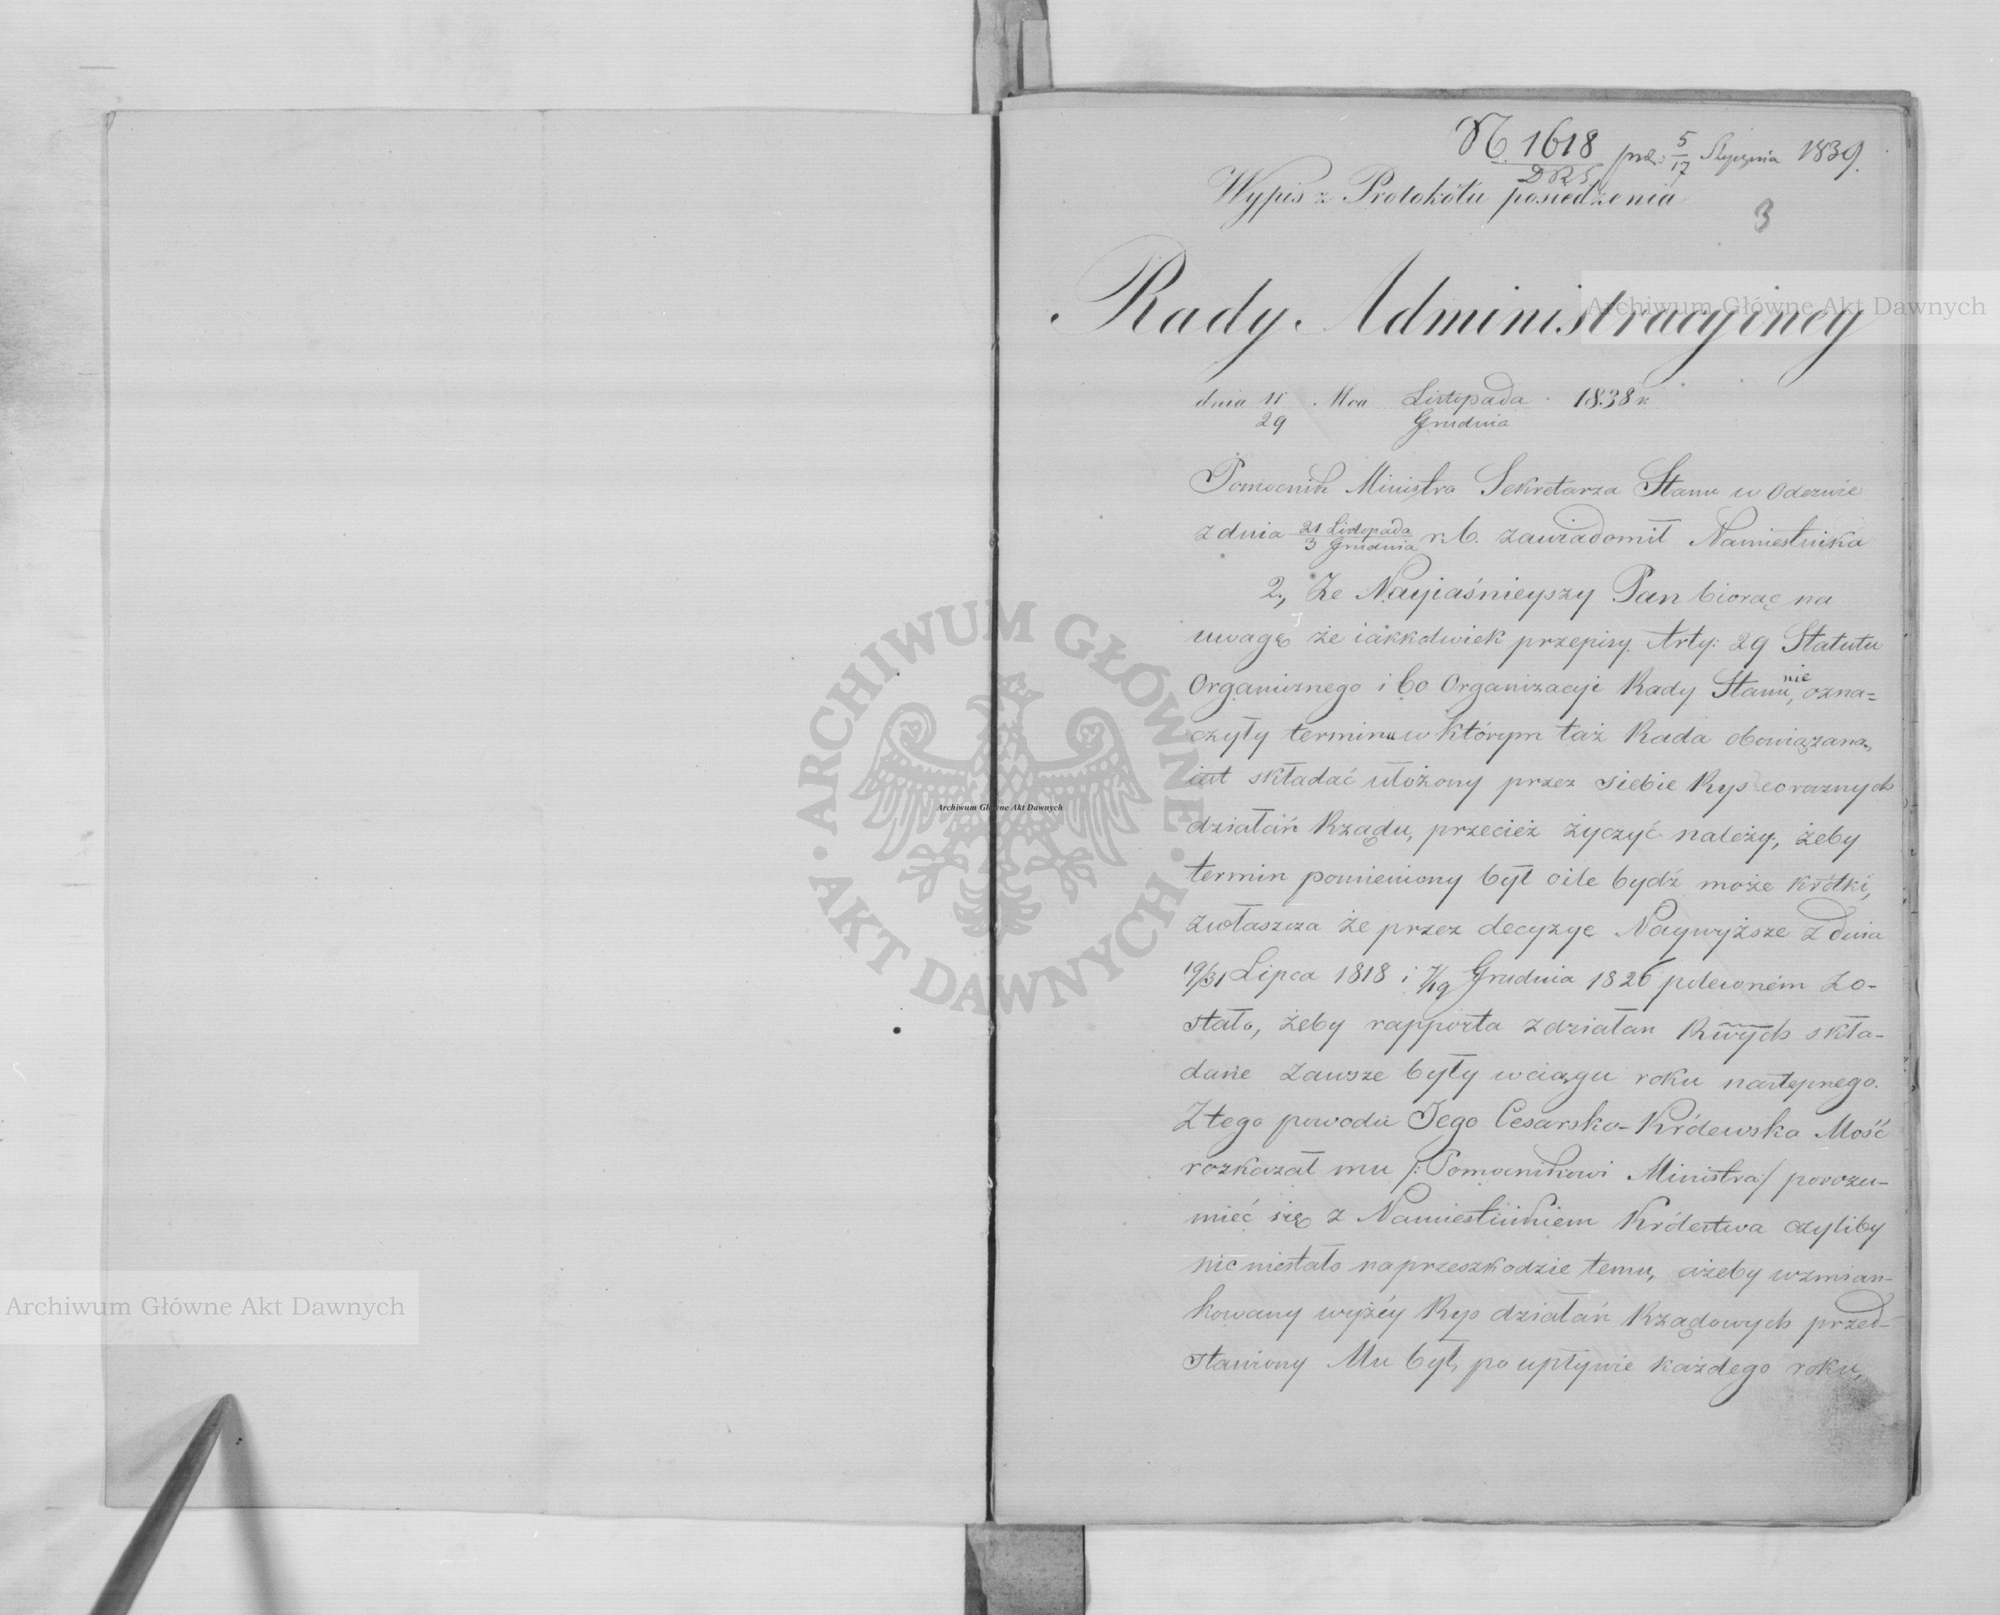 N. 1618 prz: 5/17 Stycznia 1839.
Wypis z Protokółu posiedzenia
3
Rady Administracyiney
dnia 11/29 Mca Listopada/Grudnia 1838 r.
Pomocnik Ministra Sekretarza Stanu w Odezwie
z dnia 21 Listopada/3 Grudnia r. b. zawiadomił Namiestnika
2., Że Nayiaśnieyszy Pan biorąc na
uwagę że iakkolwiek przepisy Arty: 29 Statutu
Organicznego i 60 Organizacyi Rady Stanu, nie ozna=
czyły terminu w którym taż Rada obowiązana
iest składać ułożony przez siebie Rys corocznych
działań Rządu, przecież życzyć należy, żeby
termin pomieniony był oile bydź może krótki,
zwłaszcza że przez decyzye Naywyższe z dnia
19/31 Lipca 1818 i 7/19 Grudnia 1826 poleconém zo-
stało, żeby rapporta z działań Rwych skła-
dane zawsze były w ciągu roku następnego.
Z tego powodu Jego Cesarsko-Królewska Mość
rozkazał mu /: Pomocnikowi Ministra/ porozu-
mieć się z Namiestnikiem Królestwa czyliby
nic niestało na przeszkodzie temu, ażeby wzmian-
kowany wyżéy Rys działań Rządowych przed-
stawiony Mu był, po upływie każdego roku,
Archiwum Główne Akt Dawnych
ARCHIWUM GŁÓWNE
AKT DAWNYCH
Archiwum Główne Akt Dawnych
Archiwum Główne Akt Dawnych